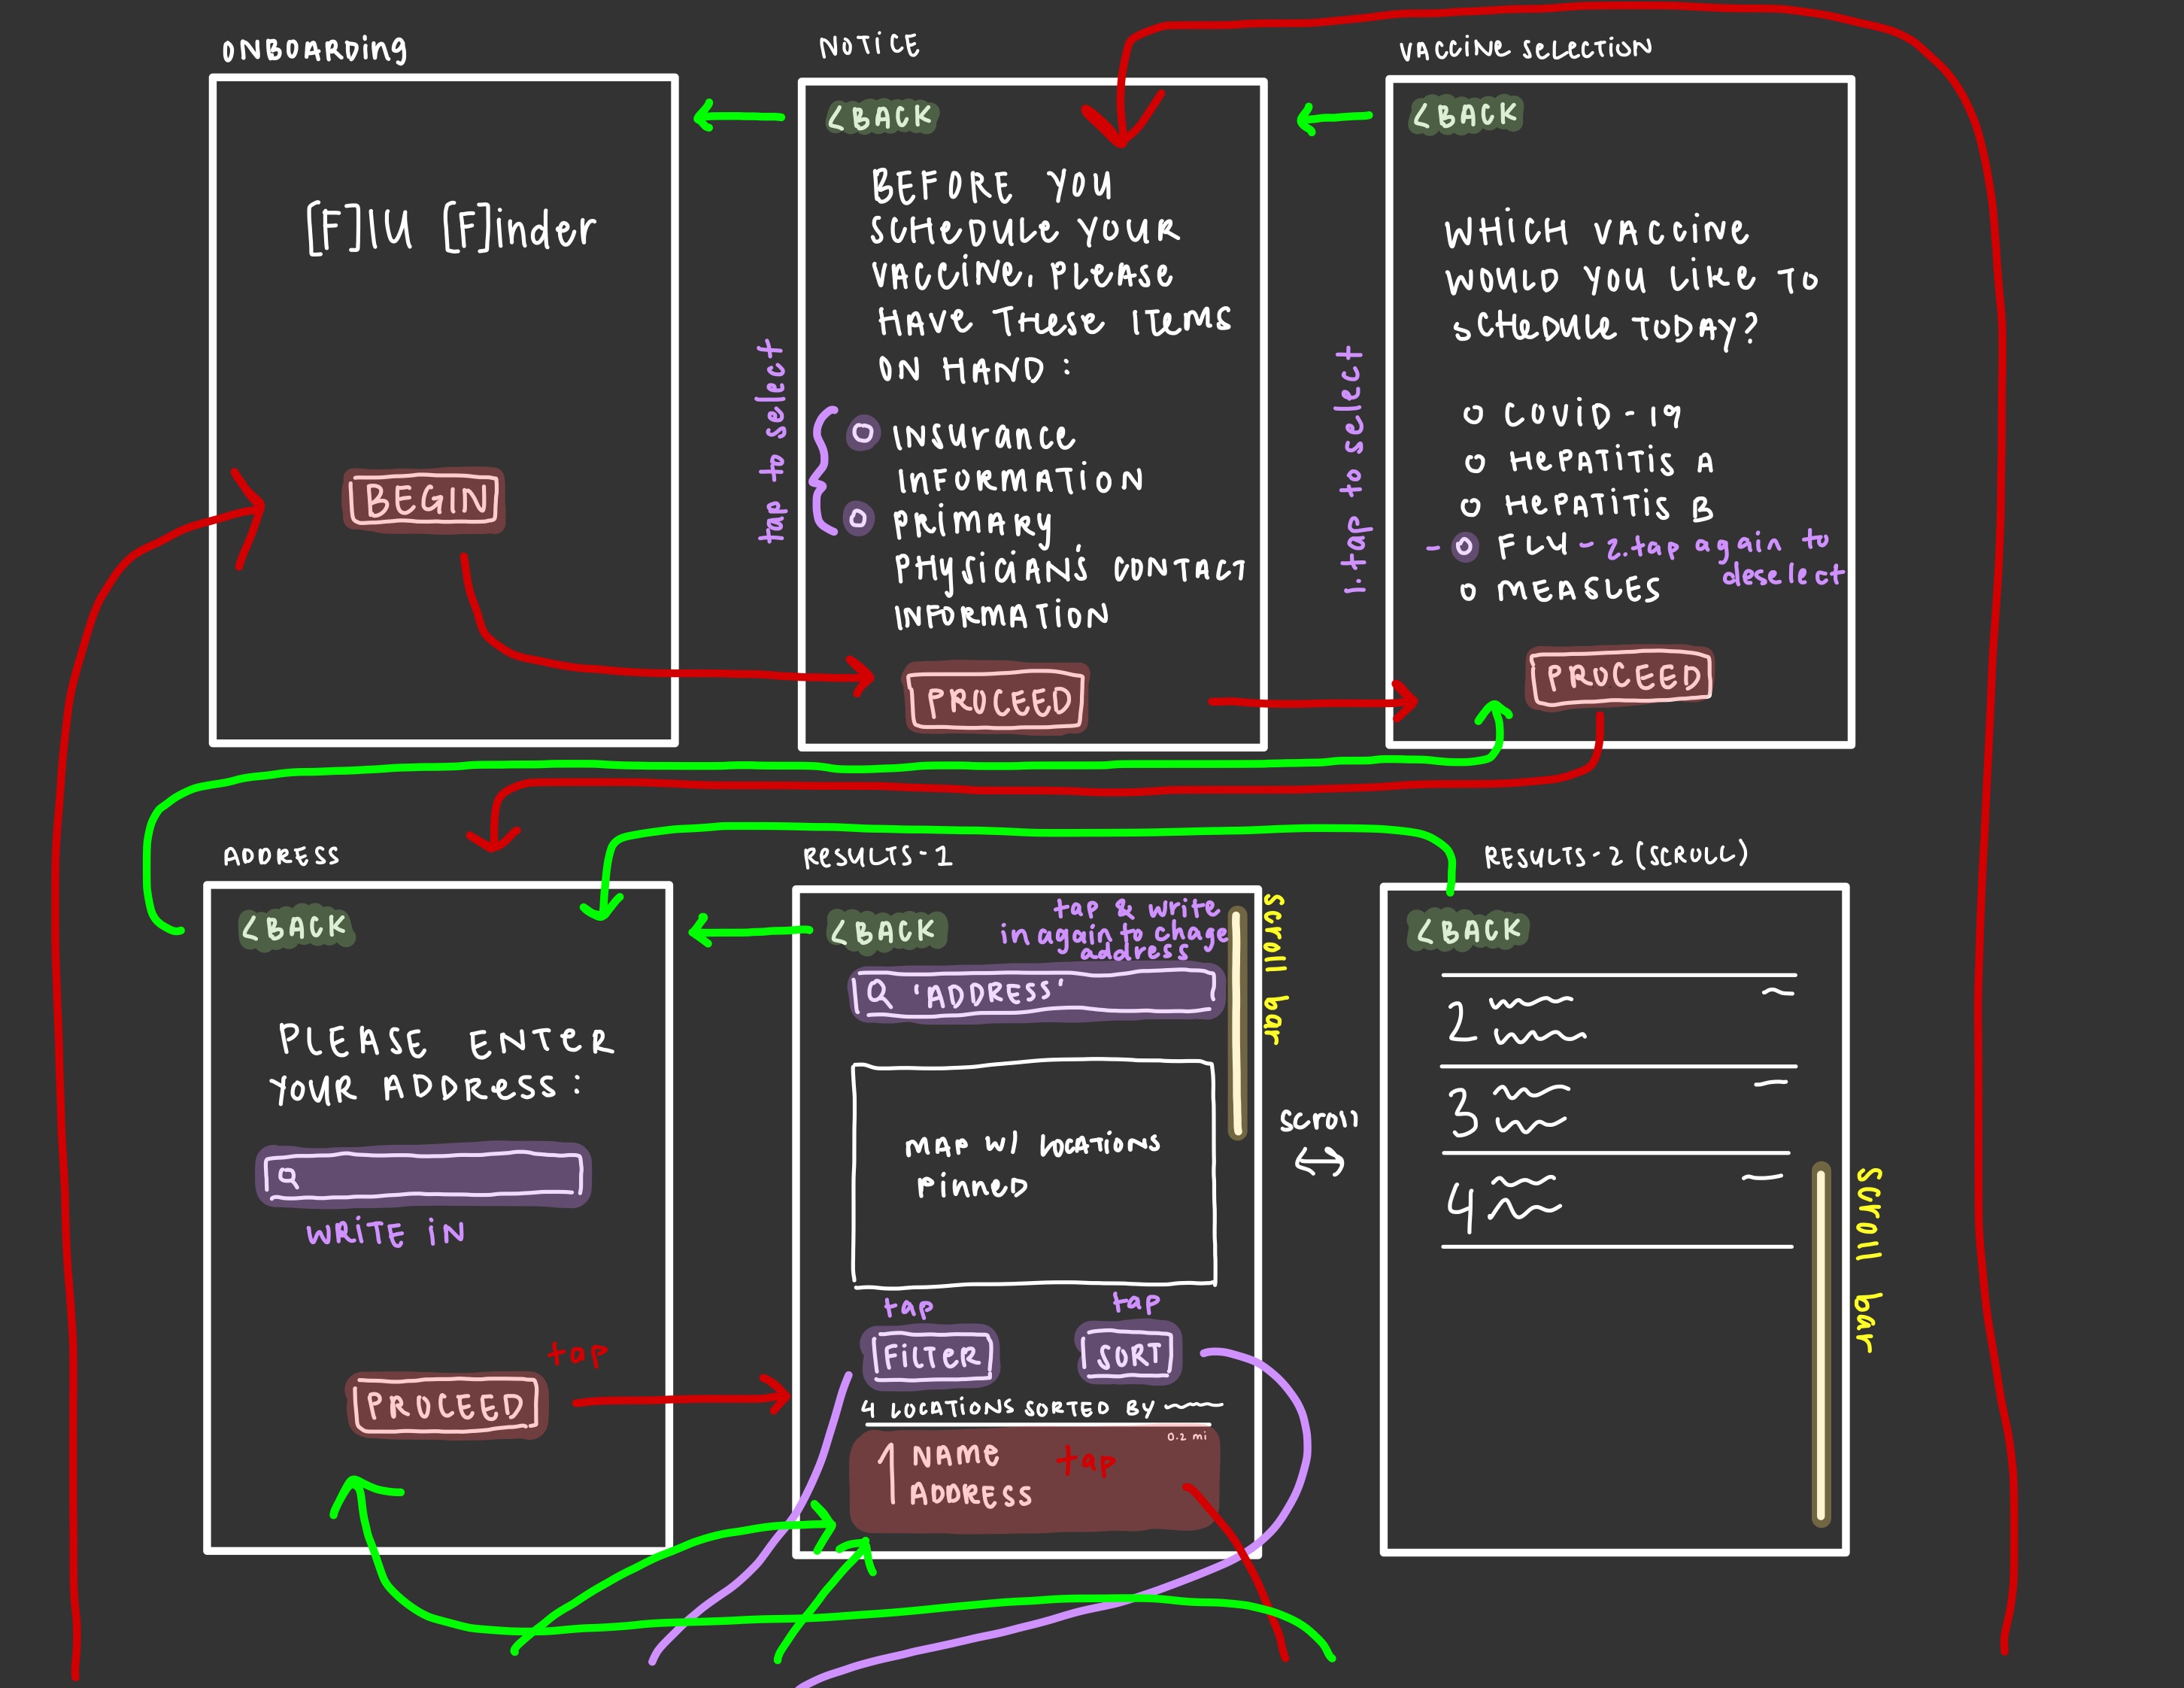 ONBOARDing
[F]lu [F]inder
BEGIN
NOTICE
< BACK
BEFORE YOU
SCHEDULE YOUR
VACCINE, PLEASE
HAVE THESE ITEMS
ON HAND :
tap to select
INSURANCE
INFORMATION
PRIMARY
PHYSICIAN'S CONTACT
INFORMATION
PROCEED
VACCINE SELECTION
< BACK
WHICH VACCINE
WOULD YOU LIKE TO
SCHEDULE TODAY?
1. tap to select
COVID-19
HEPATITIS A
HEPATITIS B
- FLU - 2. tap again to
deselect
MEASLES
PROCEED
ADDRESS
< BACK
PLEASE ENTER
YOUR ADDRESS :
WRITE IN
tap
PROCEED
RESULTS-1
< BACK
tap & write
in again to chage
address
'ADDRESS'
scroll bar
MAP W/ LOCATIONS
PINNED
tap
tap
FILTER
SORT
4 LOCATIONS SORTED BY
1 NAME
ADDRESS
tap
0.2 mi
scroll
RESULTS-2 (SCROLL)
< BACK
2
3
4
scroll bar